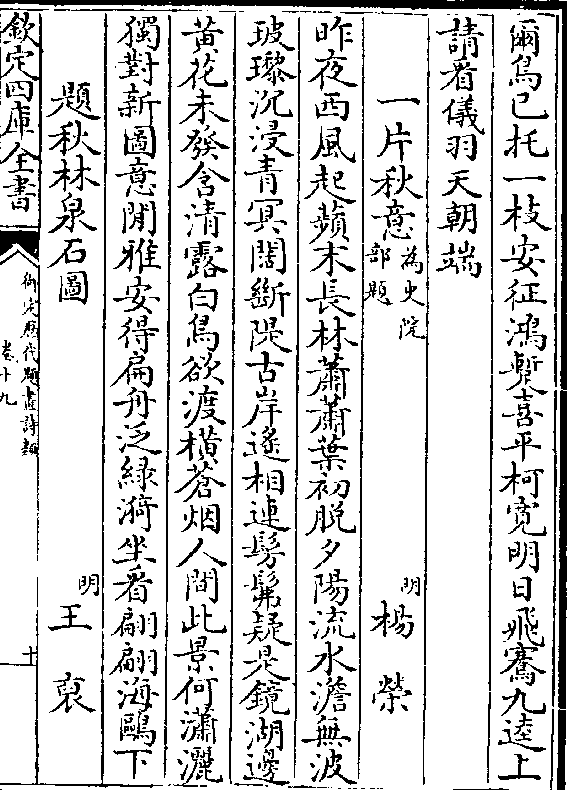 爾鳥已托一枝安征鴻漸喜平柯寛明日飛騫九逵上
請看儀羽天朝端
一片秋意為史院部題 明 楊榮
昨夜西風起蘋末長林蕭蕭葉初脱夕陽流水澹無波
玻瓈沉浸青冥闊斷隄古岸遙相連髣髴疑是鏡湖邊
黄花未發含清露白鳥欲渡橫蒼烟人間此景何瀟灑
獨對新圖意閒雅安得扁舟泛綠漪坐看翩翩海鷗下
題秋林泉石圖 明 王㒟
欽定四庫全書 御定歷代題畫詩類 卷十九 十